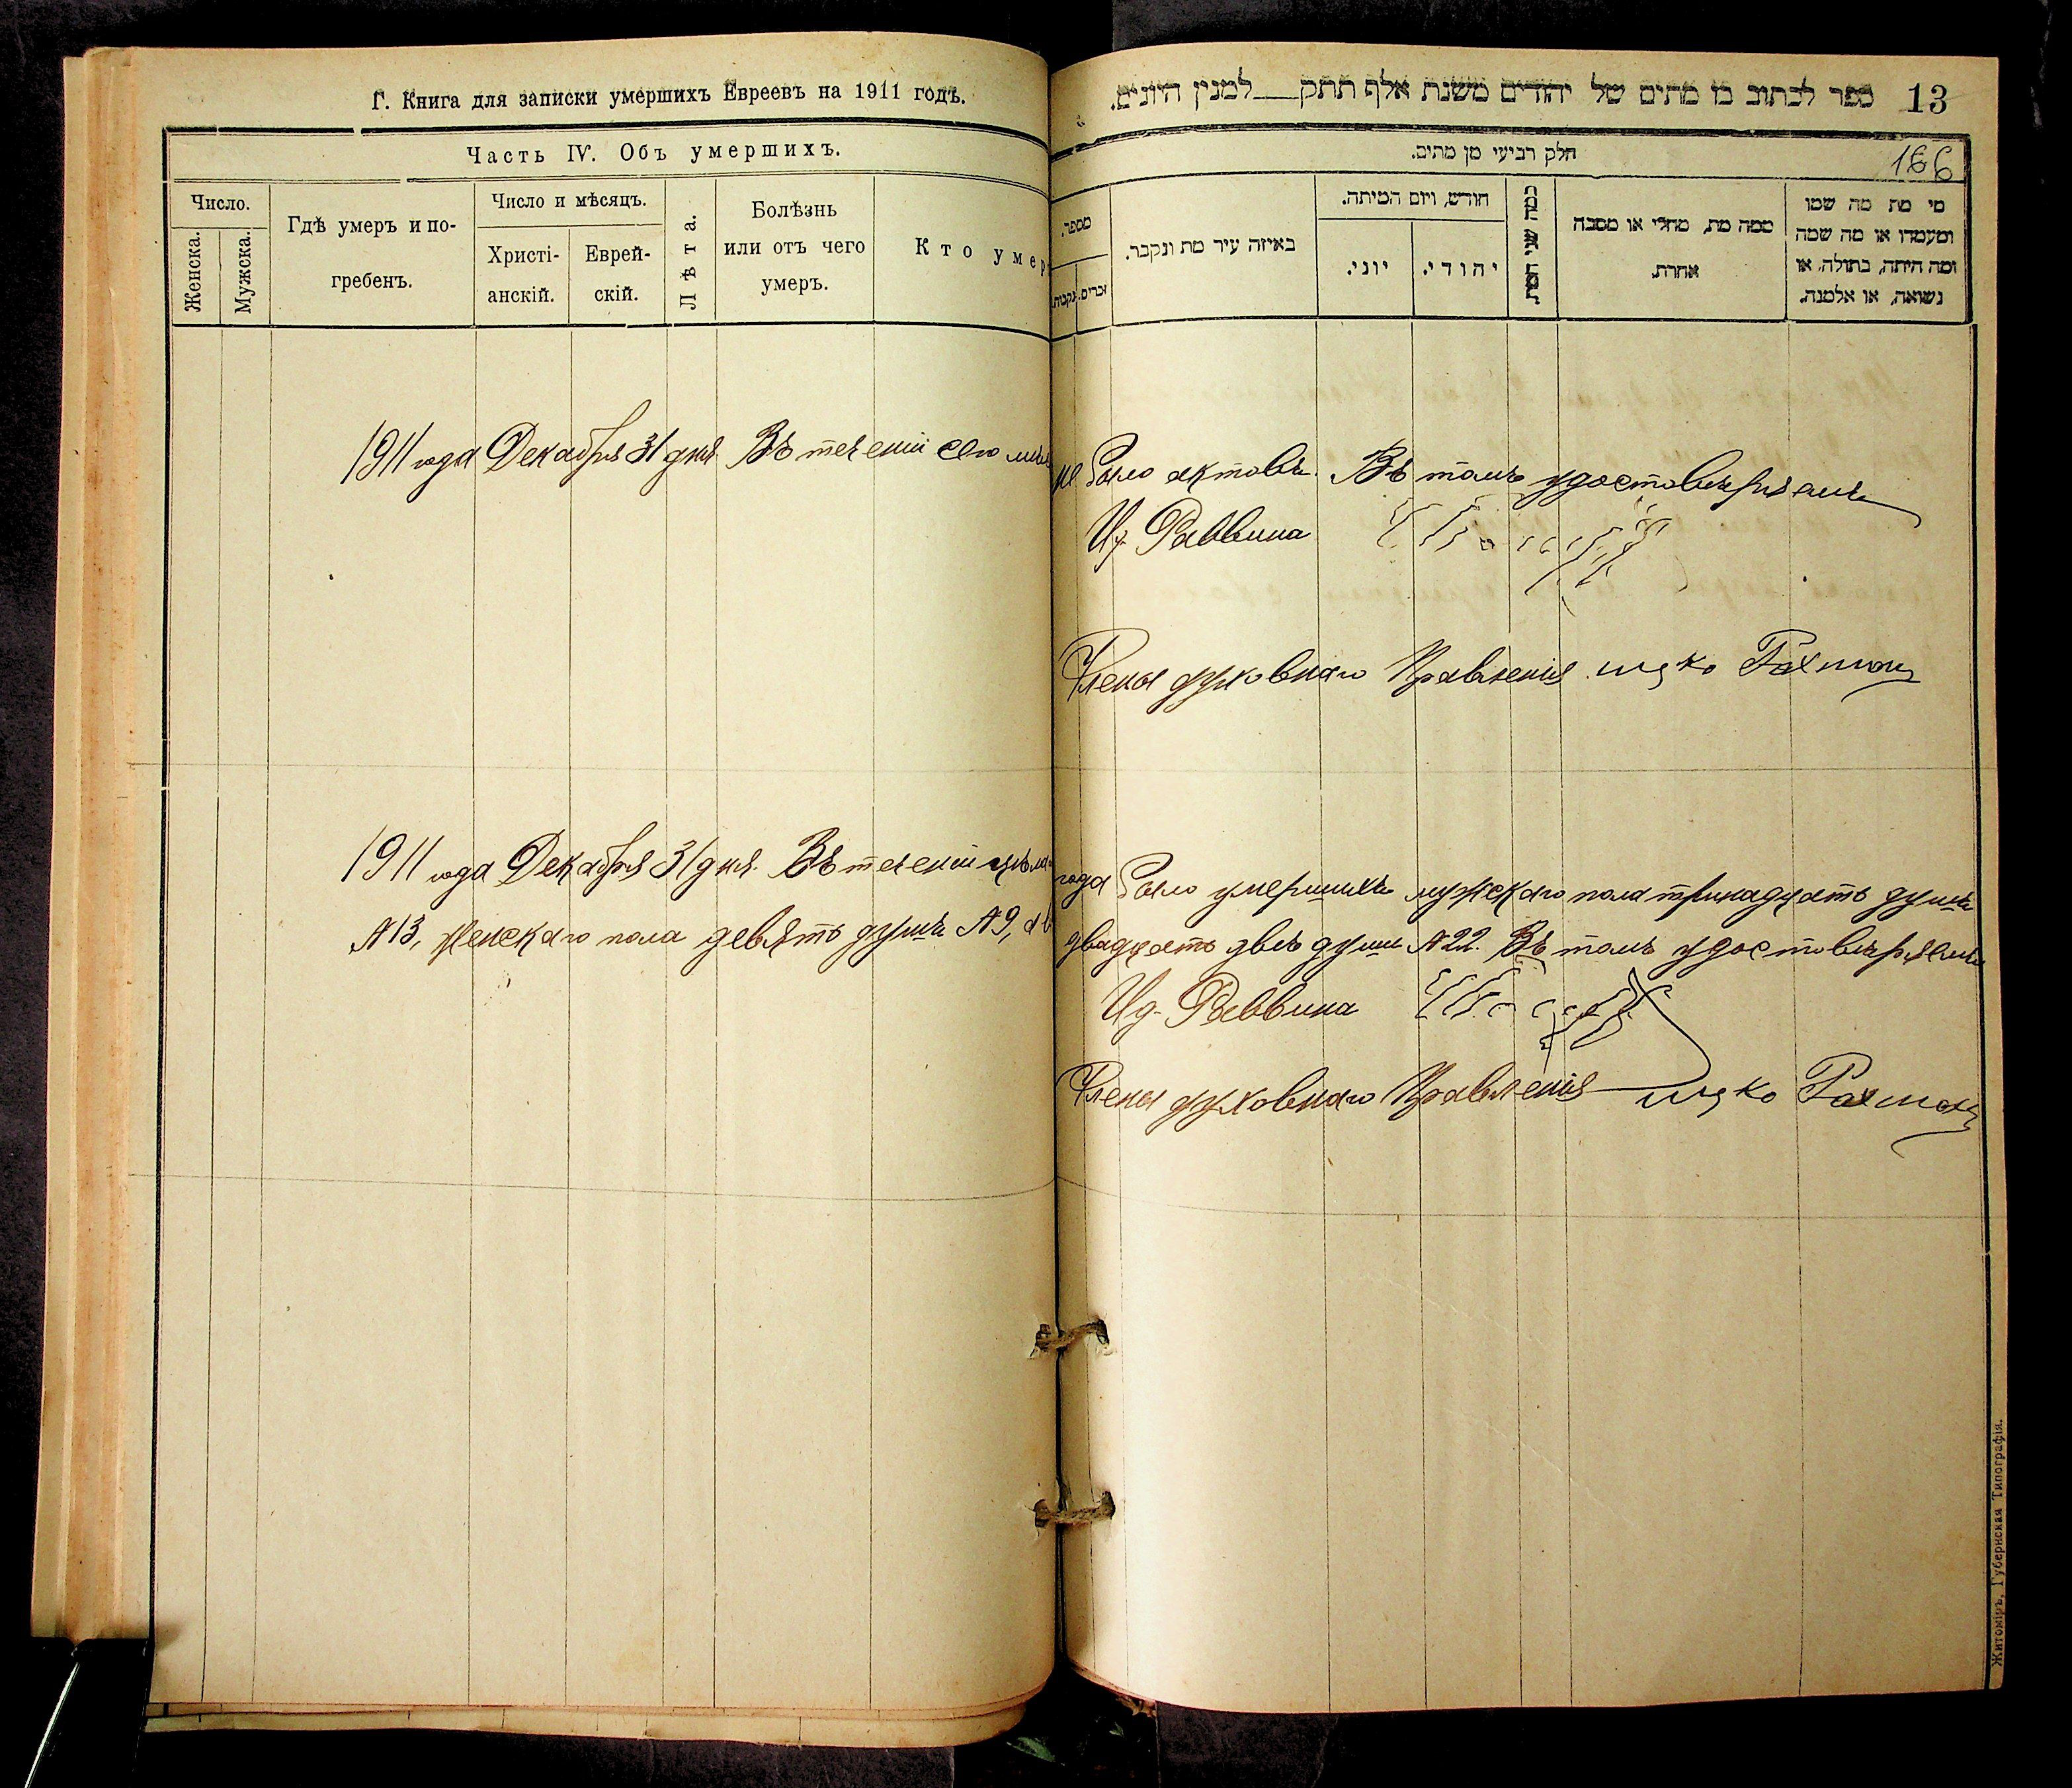 Г. Книга для записки умершихъ Евреевъ на 1911 годъ.
Часть IV. Объ умершихъ.
Число.
Женска.
Мужска.
Гдѣ умеръ и по-
гребенъ.
Число и мѣсяцъ.
Христі-
анскій.
Еврей-
скій.
Лѣта.
Болѣзнь
или отъ чего
умеръ.
Кто умер
1911 года Декабря 31 дня. Въ теченіи сего
1911 года Декабря 31 дня. Въ теченіи
№ 13, женскаго пола девять душъ № 9, а в
13 ספר לכתוב בו מתים של יהודים משנת אלף תתק למנין היונים.
186
חלק רביעי מן מתים.
מספר.
זכרים.
נקבות.
באיזה עיר מת ונקבר.
חודש, ויום המיתה.
יוני.
יהודי.
כמה שני המת.
ממה מת, מחלי או מסבה
אחרת.
מי מת מה שמו
ומעמדו או מה שמה
ומה היתה, בתולה, או
נשואה, או אלמנה.
не было актовъ. Въ томъ удостовѣряемъ
Ид. Раввина
Члены духовнаго Правленія Ицко Рахман
года было умершихъ мужскаго пола тринадцать душъ
двадцать двѣ души № 22. Въ томъ удостовѣряемъ
Ид. Раввина
Члены духовнаго Правленія Ицко Рахман
Житоміръ, Губернская Типографія.